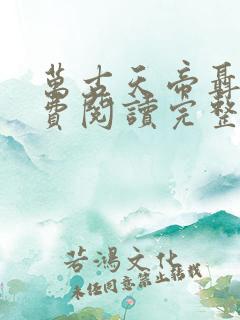 萬古天帝聶
費閱讀完整
若鴻文化
未經同意禁止轉載